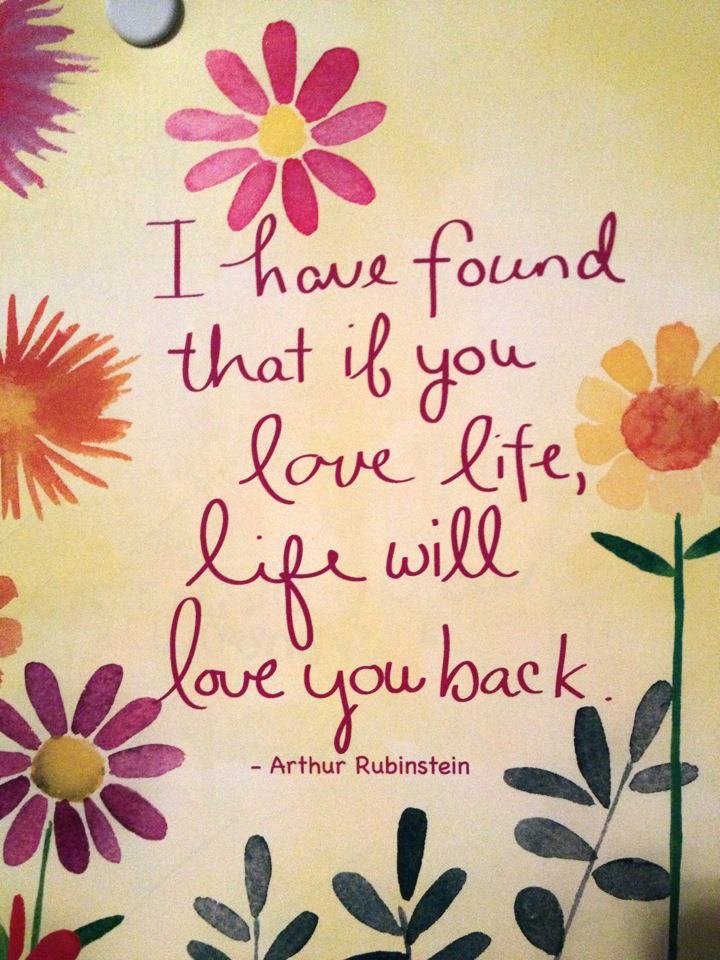 I have found
that if you
love life,
life will
love you back.
- Arthur Rubinstein